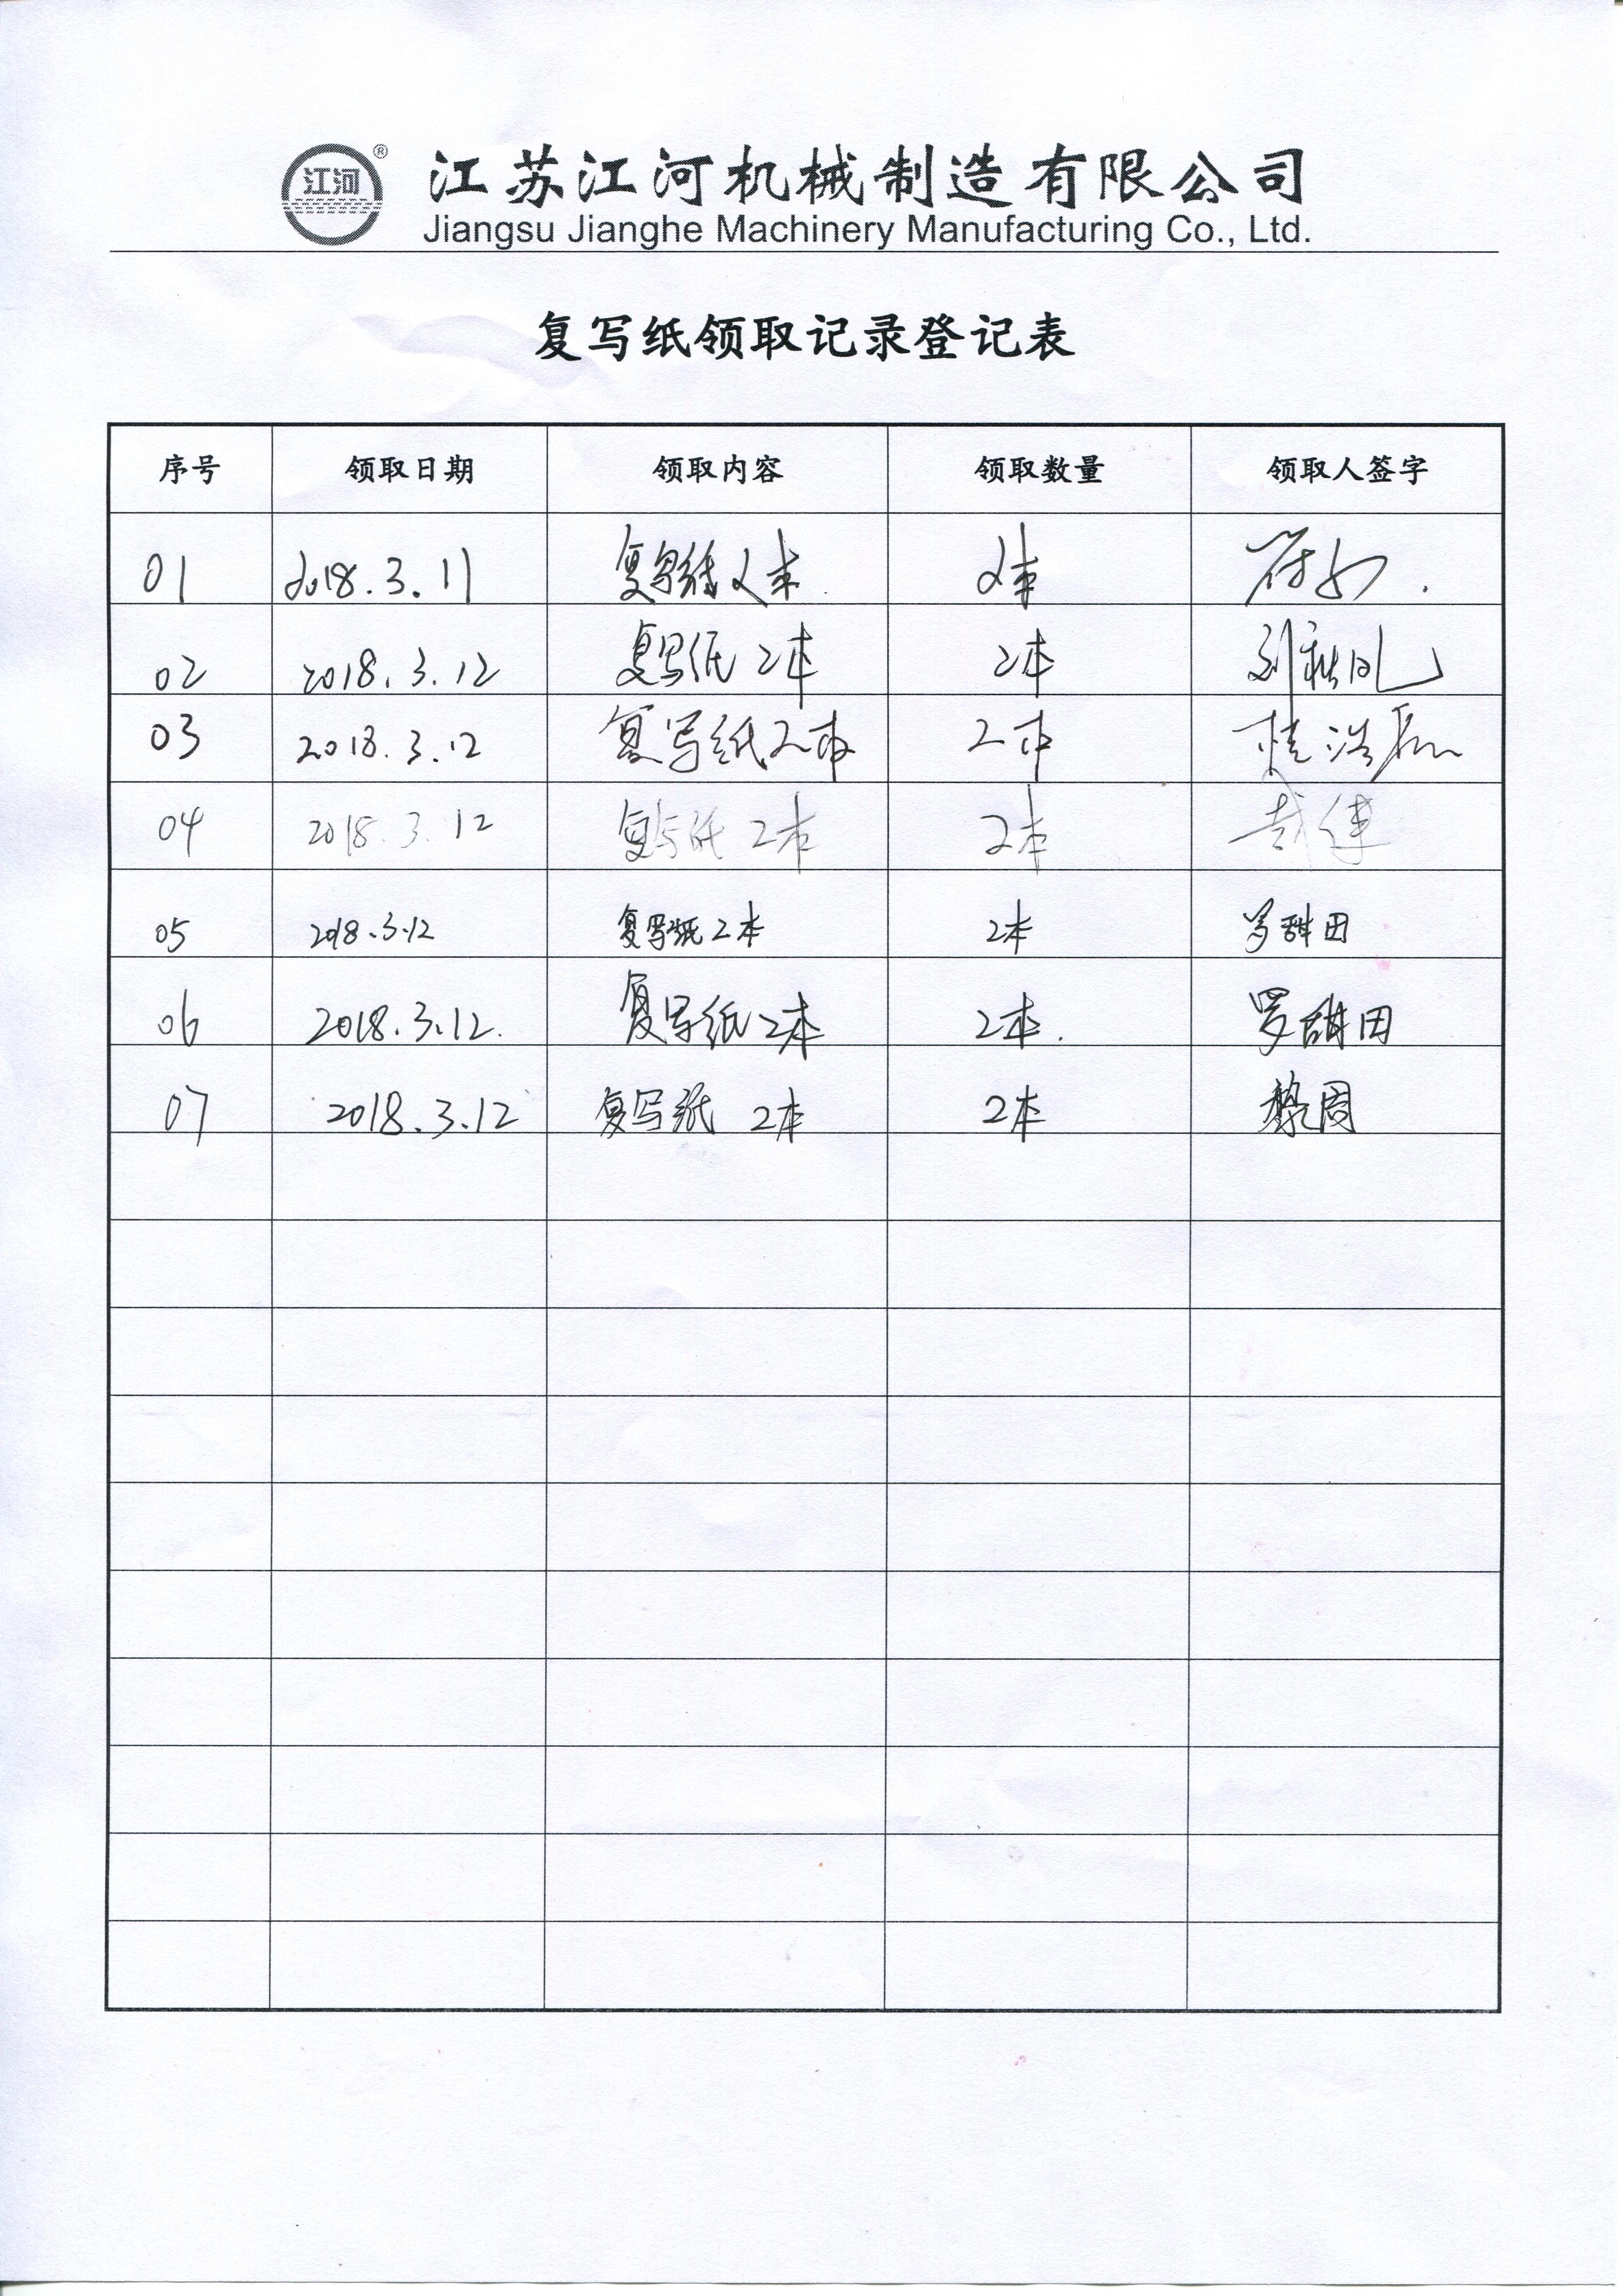 江河 ®
江苏江河机械制造有限公司
Jiangsu Jianghe Machinery Manufacturing Co., Ltd.
复写纸领取记录登记表
序号 领取日期 领取内容 领取数量 领取人签字
01 2018.3.11 复写纸2本 2本
02 2018.3.12 复写纸 2本 2本
03 2018.3.12 复写纸2本 2本
04 2018.3.12 复写纸 2本 2本
05 2018.3.12 复写纸2本 2本 罗甜田
06 2018.3.12. 复写纸2本 2本. 罗甜田
07 2018.3.12 复写纸 2本 2本